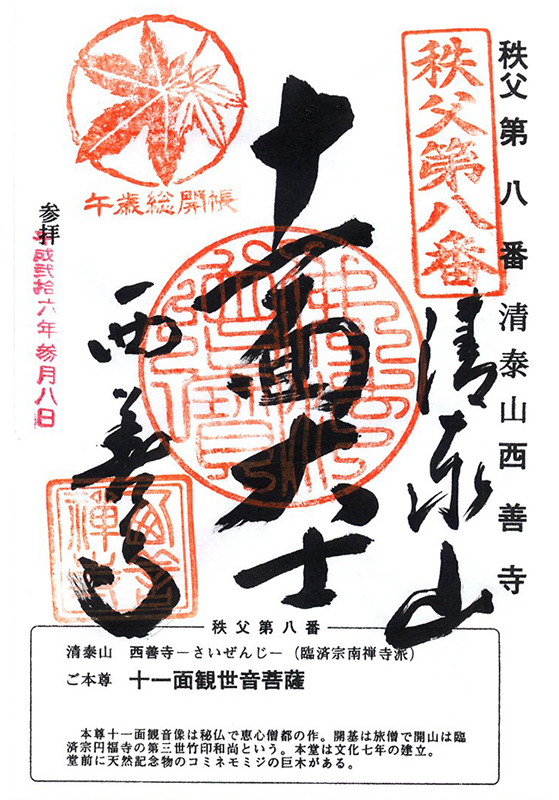 秩父第八番 清泰山西善寺
秩父第八番
清泰山
十一面大士
午歳総開帳
参拝
平成弐拾六年参月八日
西善寺
秩父第八番
清泰山 西善寺－さいぜんじ－（臨済宗南禅寺派）
ご本尊 十一面観世音菩薩
本尊十一面観音像は秘仏で恵心僧都の作。開基は旅僧で開山は臨
済宗円福寺の第三世竹印和尚という。本堂は文化七年の建立。
堂前に天然記念物のコミネモミジの巨木がある。